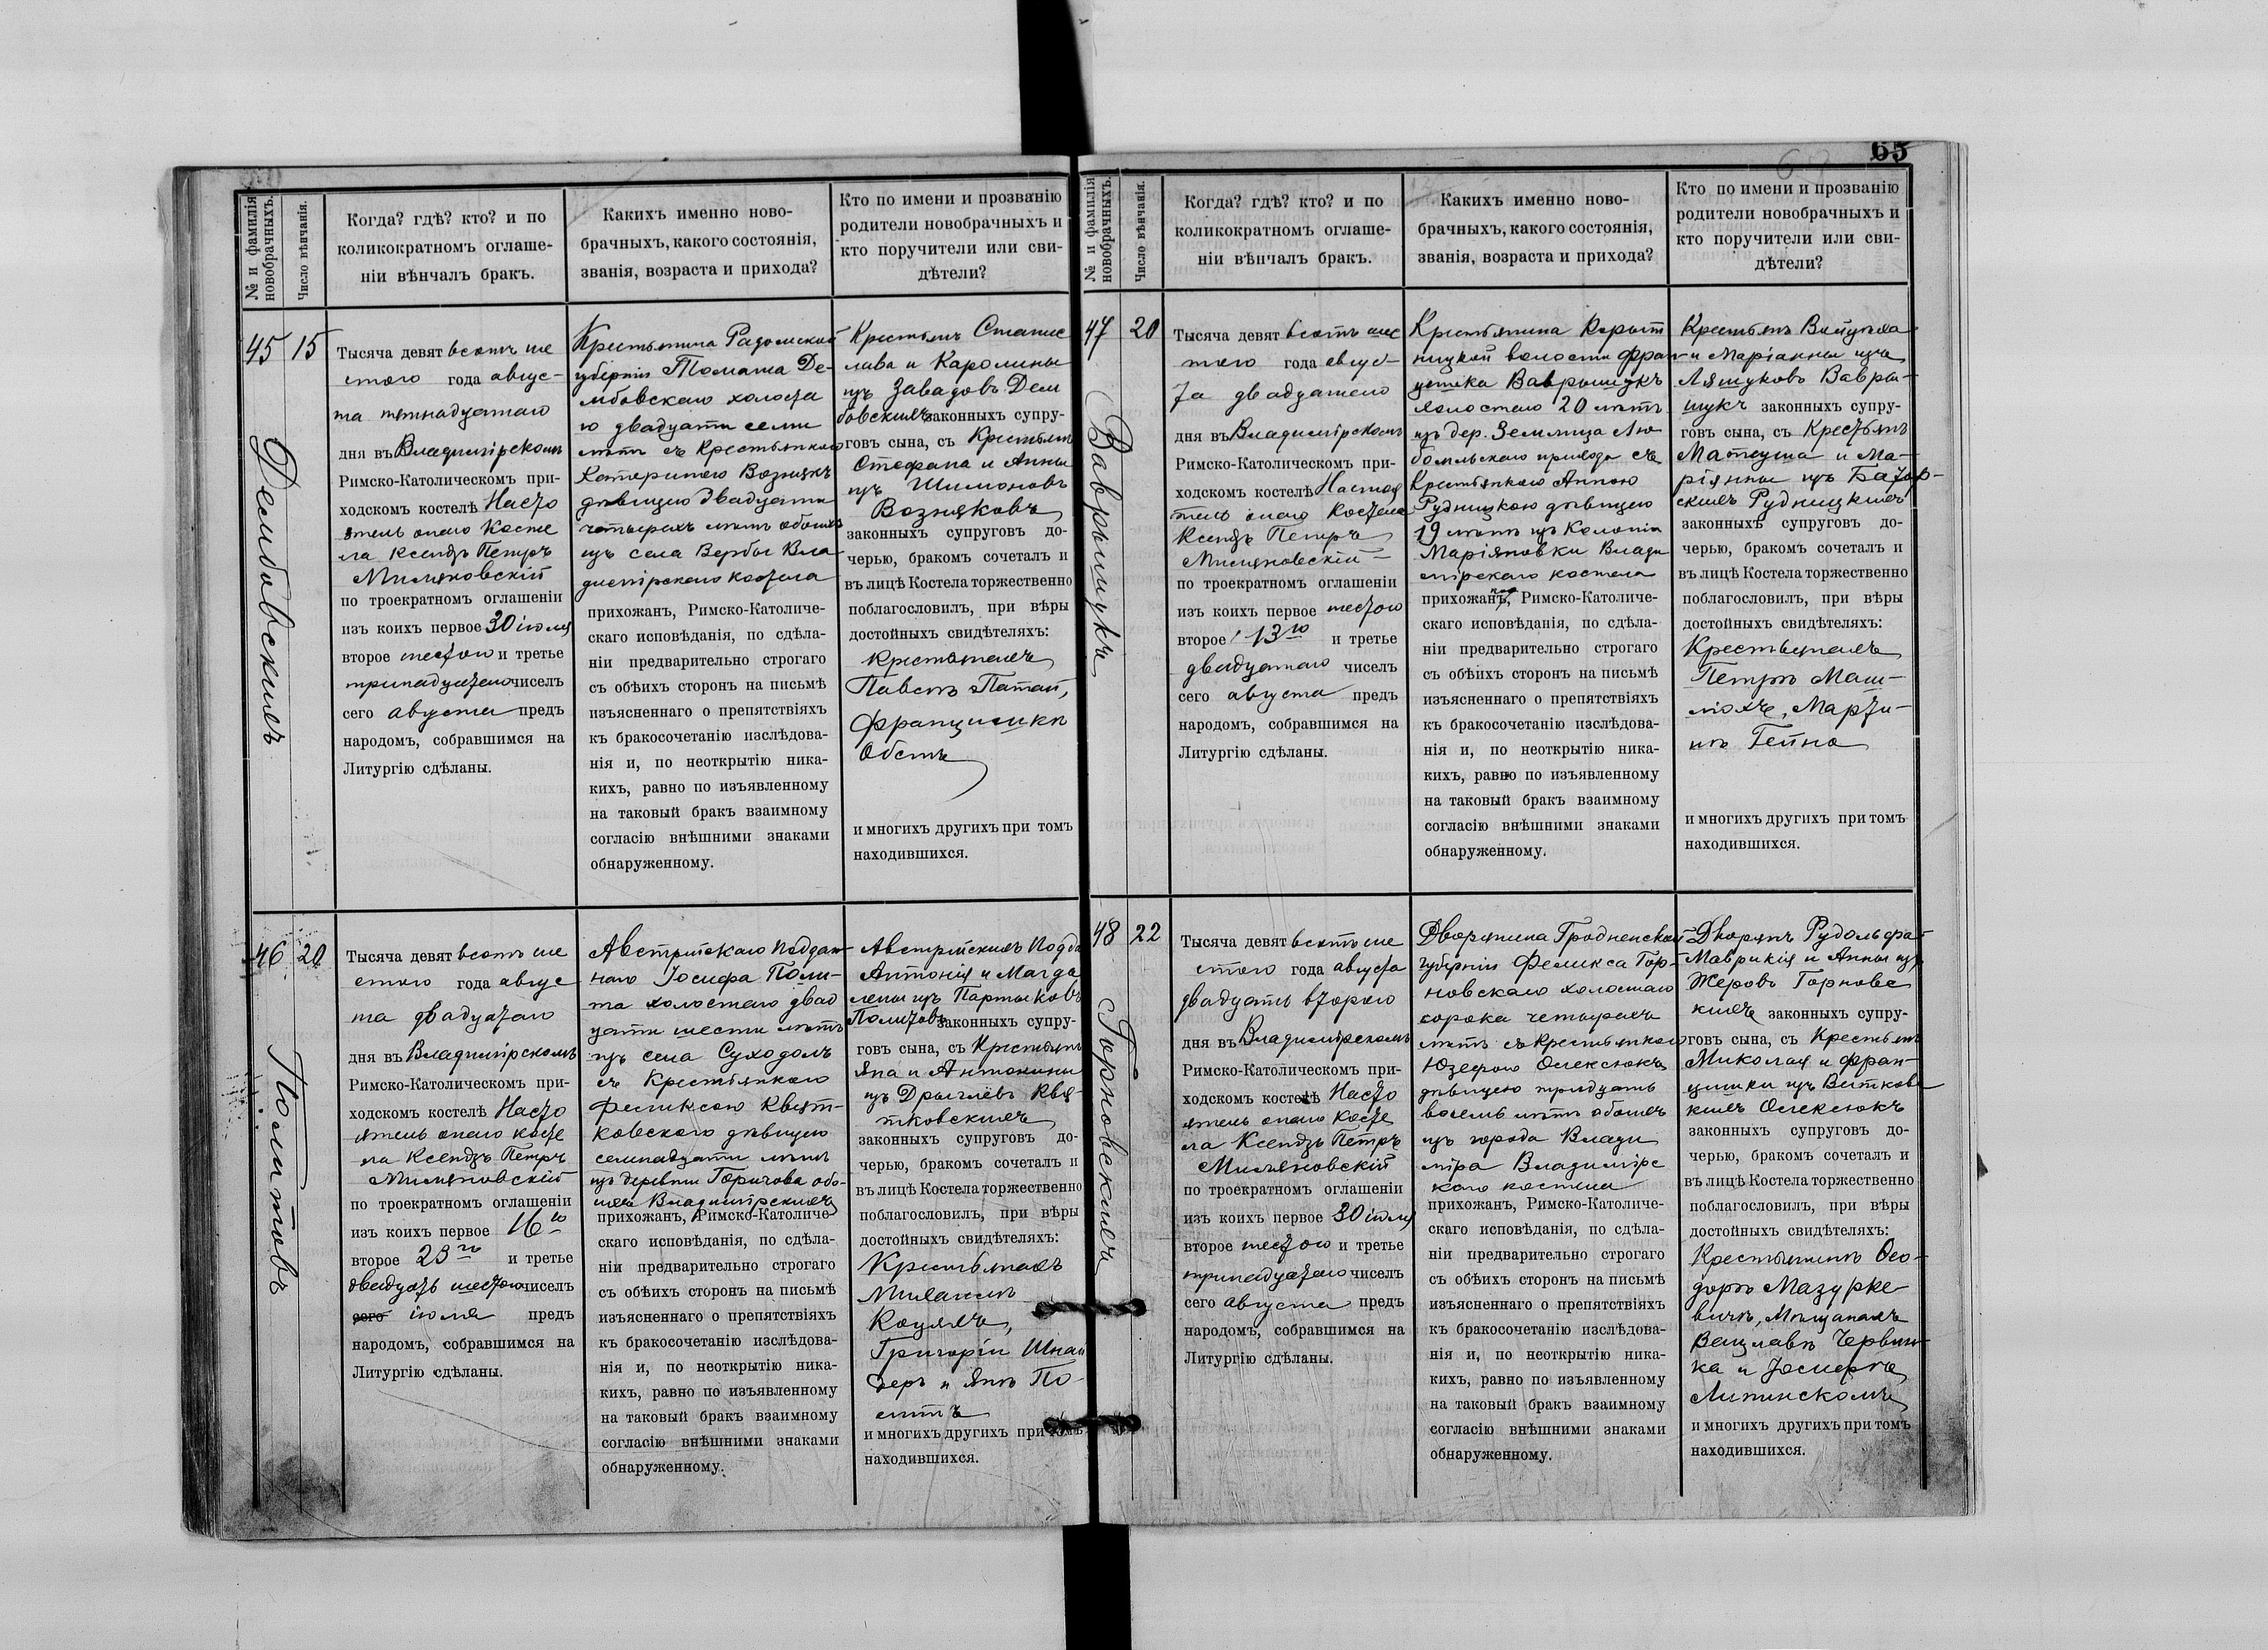 № и фамилія
новобрачныхъ.
Число вѣнчанія.
Когда? гдѣ? кто? и по
коликократномъ оглаше-
ніи вѣнчалъ бракъ.
Какихъ именно ново-
брачныхъ, какого состоянія,
званія, возраста и прихода?
Кто по имени и прозванію
родители новобрачныхъ и
кто поручители или сви-
дѣтели?
45
15
Дембовскихъ
Тысяча девятьсотъ ше
стого года авгус-
та пятнадцатаго
дня въ Владимірскомъ
Римско-Католическомъ при-
ходскомъ костелѣ Насто
ятель онаго Косте
ла Ксендзъ Петръ
по троекратномъ оглашеніи
изъ коихъ первое 30 іюля
второе шестого и третье
тринадцатаго чиселъ
сего августа предъ
народомъ, собравшимся на
Литургію сдѣланы.
Крестьянина Радомской
губерніи Томаша Де-
мбовскаго холоста
го двадцати семи
лѣтъ съ Крестьянкою
Катериною Вознякъ
дѣвицею двадцати
четырехъ лѣтъ обоихъ
изъ села Вербы Вла
димірскаго костела
прихожанъ, Римско-Католиче-
скаго исповѣданія, по сдѣла-
ніи предварительно строгаго
съ обѣихъ сторонъ на письмѣ
изъясненнаго о препятствіяхъ
къ бракосочетанію изслѣдова-
нія и, по неоткрытію ника-
кихъ, равно по изъявленному
на таковый бракъ взаимному
согласію внѣшними знаками
обнаруженному.
Крестьянъ Станис
лава и Каролины
изъ Завадовъ Дем
бовскихъ законныхъ супру-
говъ сына, съ Крестьянъ
Стефана и Анны
изъ Шимоновъ
Возняковъ
законныхъ супруговъ до-
черью, бракомъ сочеталъ и
въ лицѣ Костела торжественно
поблагословилъ, при вѣры
достойныхъ свидѣтеляхъ:
Крестьянахъ
Павелъ Патай,
Францишекъ
Обстъ
и многихъ другихъ при томъ
находившихся.
46
20
Политовъ
Тысяча девятьсотъ ше
стого года авгус
та двадцатаго
дня въ Владимірскомъ
Римско-Католическомъ при-
ходскомъ костелѣ Насто
ятель онаго косте
ла Ксендзъ Петръ
по троекратномъ оглашеніи
изъ коихъ первое 16 го
второе 23 го и третье
двадцать шестого чиселъ
сего іюля предъ
народомъ, собравшимся на
Литургію сдѣланы.
Австрійскаго поддан-
наго Іосифа Поли-
та холостаго двад
цати шести лѣтъ
изъ села Суходолъ
съ Крестьянкою
Феликсою Квят-
ковскою дѣвицею
семнадцати лѣтъ
изъ деревни Горичова обо-
ихъ Владимірскихъ
прихожанъ, Римско-Католиче-
скаго исповѣданія, по сдѣла-
ніи предварительно строгаго
съ обѣихъ сторонъ на письмѣ
изъясненнаго о препятствіяхъ
къ бракосочетанію изслѣдова-
нія и, по неоткрытію ника-
кихъ, равно по изъявленному
на таковый бракъ взаимному
согласію внѣшними знаками
обнаруженному.
Австрійскихъ подда
Антонія и Магда
лены изъ Партыковъ
Политовъ законныхъ супру-
говъ сына, съ Крестьянъ
Яна и Антонины
изъ Квя-
тковскихъ
законныхъ супруговъ до-
черью, бракомъ сочеталъ и
въ лицѣ Костела торжественно
поблагословилъ, при вѣры
достойныхъ свидѣтеляхъ:
Крестьянахъ
Григорій Шнай
деръ и Янъ По-
литъ
и многихъ другихъ при томъ
находившихся.
65
№ и фамилія
новобрачныхъ.
Число вѣнчанія.
Когда? гдѣ? кто? и по
коликократномъ оглаше-
ніи вѣнчалъ бракъ.
Какихъ именно ново-
брачныхъ, какого состоянія,
званія, возраста и прихода?
Кто по имени и прозванію
родители новобрачныхъ и
кто поручители или сви-
дѣтели?
47
20
Ваврищукъ
Тысяча девятьсотъ шес
того года авгус-
та двадцатаго
дня въ Владимірскомъ
Римско-Католическомъ при-
ходскомъ костелѣ Настоя
тель онаго Костела
Ксендзъ Петръ
по троекратномъ оглашеніи
изъ коихъ первое шестого
второе 13 го и третье
двадцатаго чиселъ
сего августа предъ
народомъ, собравшимся на
Литургію сдѣланы.
Крестьянина Корыт
ницкой волости Фран-
цишка Ваврищукъ
холостаго 20 лѣтъ
изъ дер. Землица Лю
бомльскаго прихода съ
Крестьянкою Анною
Рудницкою дѣвицею
19 лѣтъ изъ Колоніи
Маріяновки Влади
мірскаго костела
прихожанъ, Римско-Католиче-
скаго исповѣданія, по сдѣла-
ніи предварительно строгаго
съ обѣихъ сторонъ на письмѣ
изъясненнаго о препятствіяхъ
къ бракосочетанію изслѣдова-
нія и, по неоткрытію ника-
кихъ, равно по изъявленному
на таковый бракъ взаимному
согласію внѣшними знаками
обнаруженному.
Крестьянъ Войцѣха
и Маріанны изъ
Ляшуковъ Ваври-
щукъ законныхъ супру-
говъ сына, съ Крестьянъ
Матеуша и Ма-
ріянны изъ Батор-
скихъ Рудницкихъ
законныхъ супруговъ до-
черью, бракомъ сочеталъ и
въ лицѣ Костела торжественно
поблагословилъ, при вѣры
достойныхъ свидѣтеляхъ:
Крестьянахъ
Петръ Маш-
Марти-
нъ Гейна
и многихъ другихъ при томъ
находившихся.
48
22
Горновскихъ
Тысяча девятьсотъ ше
стого года августа
двадцать второго
дня въ Владимірскомъ
Римско-Католическомъ при-
ходскомъ костелѣ Насто
ятель онаго Косте
ла Ксендзъ Петръ
по троекратномъ оглашеніи
изъ коихъ первое 30 іюля
второе шестого и третье
тринадцатаго чиселъ
сего августа предъ
народомъ, собравшимся на
Литургію сдѣланы.
Дворянина Гродненской
губерніи Феликса Гор-
новскаго холостаго
сорока четырехъ
лѣтъ съ Крестьянкою
Юзефою Олексюкъ
дѣвицею тридцать
восемь лѣтъ обоихъ
изъ города Влади
міра Владимірс
каго костела
прихожанъ, Римско-Католиче-
скаго исповѣданія, по сдѣла-
ніи предварительно строгаго
съ обѣихъ сторонъ на письмѣ
изъясненнаго о препятствіяхъ
къ бракосочетанію изслѣдова-
нія и, по неоткрытію ника-
кихъ, равно по изъявленному
на таковый бракъ взаимному
согласію внѣшними знаками
обнаруженному.
Дворянъ Рудольфа-
Маврикія и Анны изъ
Жеровъ Горновс
кихъ законныхъ супру-
говъ сына, съ Крестьянъ
Миколая и Фран-
цишки изъ Витков-
кихъ Олексюкъ
законныхъ супруговъ до-
черью, бракомъ сочеталъ и
въ лицѣ Костела торжественно
поблагословилъ, при вѣры
достойныхъ свидѣтеляхъ:
Крестьянинъ Ѳео-
доръ Мазурке
вичъ, Мѣщанахъ
Вацлавъ Червин-
ка и Іосифъ
Липинскомъ
и многихъ другихъ при томъ
находившихся.